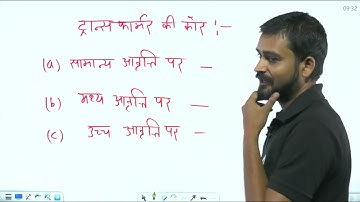 09:32
ट्रान्सफार्मर की कोर :-
(a) सामान्य आवृत्ति पर —
(b) मध्य आवृत्ति पर —
(c) उच्च आवृत्ति पर —